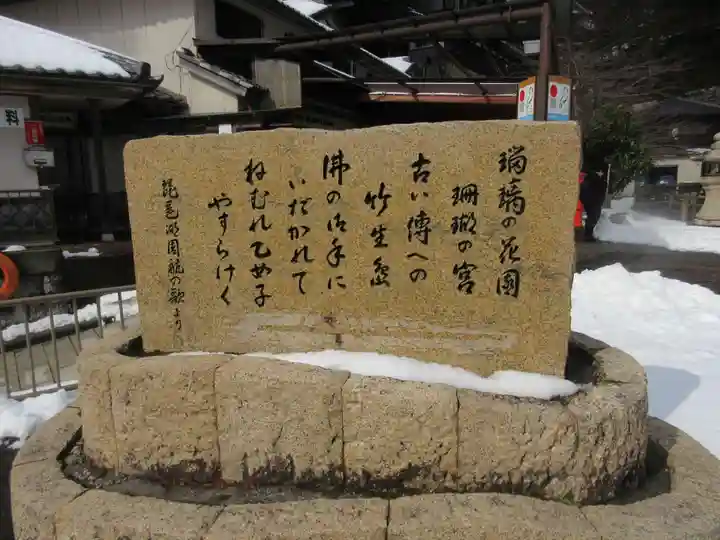 瑠璃の花園
珊瑚の宮
古い傳への
竹生島
佛の御手に
いだかれて
ねむれ乙女子
やすらけく
琵琶湖周航の歌より
料